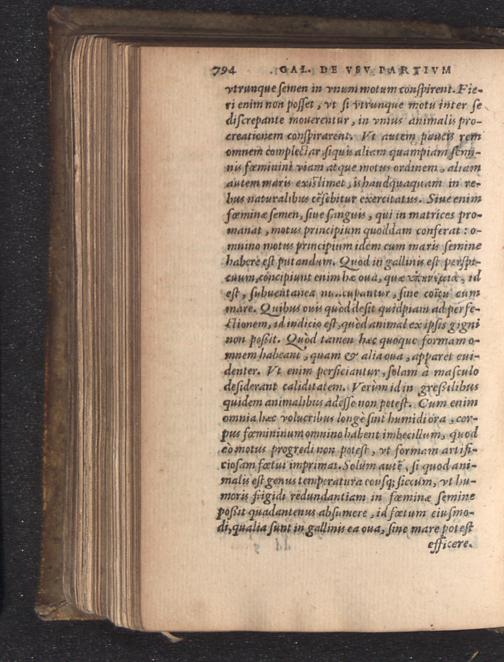 794 . GAL. DE VSV PARTIVM
vtrunque semen in vnum motum conspirent. Fie-
ri enim non posset, vt si vtrunque motu inter se
discrepante mouerentur, in vnius animalis pro-
creationem conspirarent. Vt autem paucis rem
omnem complectar, si quis aliam quampiam semi-
nis fœminini viam atque motus ordinem, aliam
autem maris existimet, is haudquaquam in re-
bus naturalibus cẽsebitur exercitatus. Siue enim
fœminæ semen, siue sanguis, qui in matrices pro-
manat, motus principium quoddam conferat: o-
mnino motus principium idem cum maris semine
habere est putandum. Quòd in gallinis est perspi-
cuum, concipiunt enim hæ oua, quæ ὑπηνέμια, id
est, subuentanea nuncupantur, sine coïtu cum
mare. Quibus ouis quòd desit quidpiam ad perfe-
ctionem, id indicio est, quòd animal ex ipsis gigni
non poßit. Quòd tamen hæc quoque formam o-
mnem habeant, quam & alia oua, apparet eui-
denter. Vt enim perficiantur, solam à masculo
desiderant caliditatem. Verùm id in greßilibus
quidem animalibus adesse non potest. Cum enim
omnia hæc volucribus longè sint humidiora, cor-
pus fœmininum omnino habent imbecillum, quod
eò motus progredi non potest, vt formam artifi-
ciosam fœtui imprimat. Solum autẽ, si quod ani-
malis est genus temperatura cousq; siccum, vt hu-
moris frigidi redundantiam in fœminæ semine
poßit quadantenus absumere, id fœtum eiusmo-
di, qualia sunt in gallinis ea oua, sine mare potest
efficere.